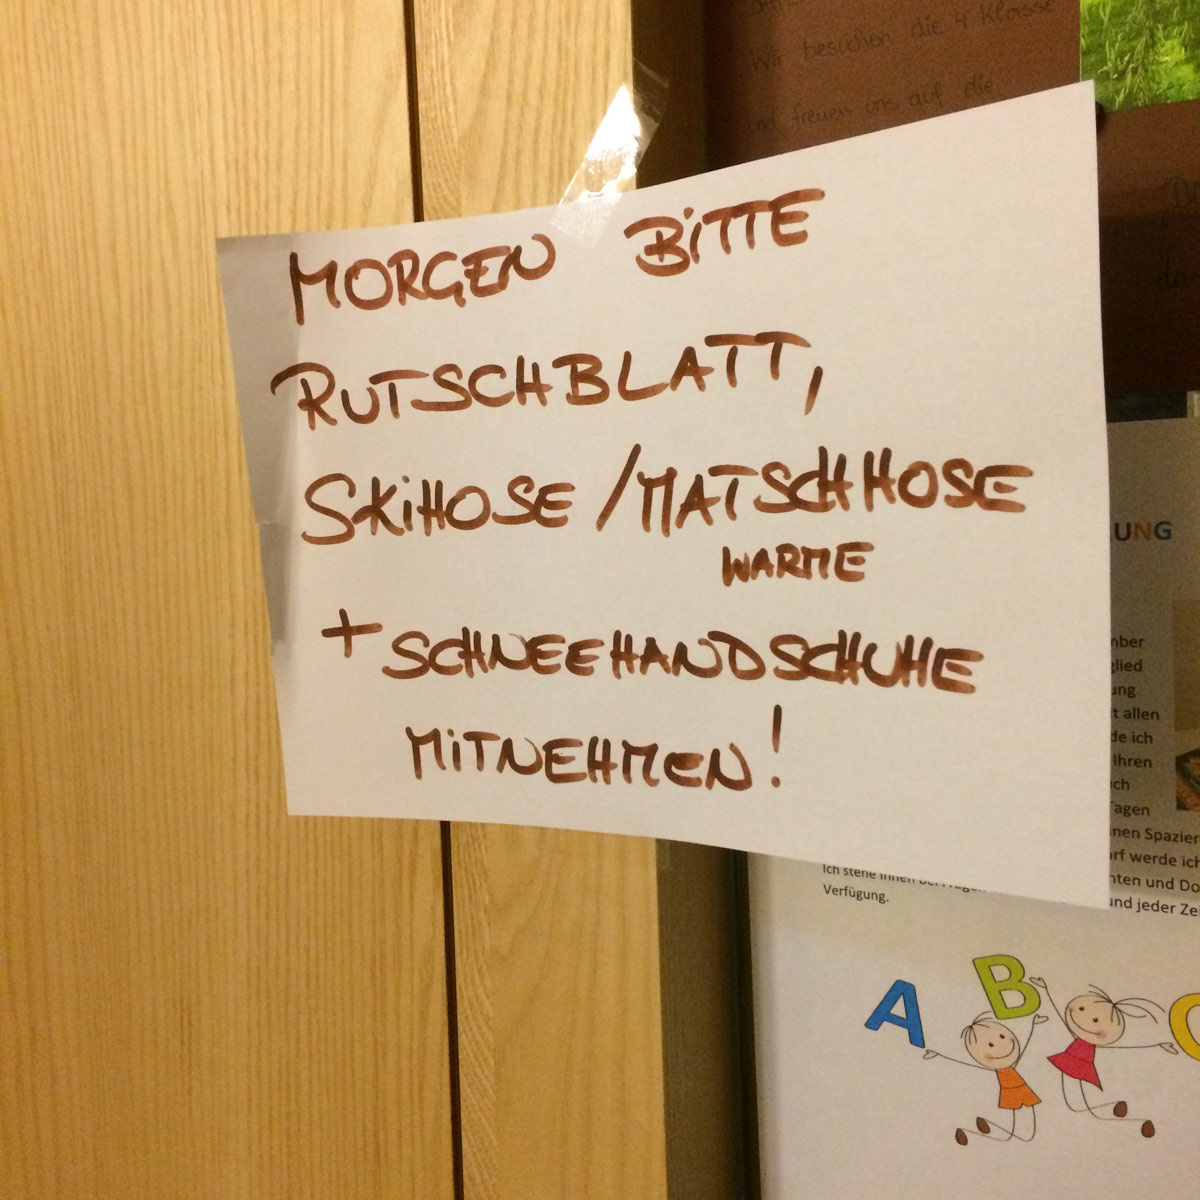 Wir besuchen die 4 Klasse
und freuen uns auf die
MORGEN BITTE
RUTSCHBLATT,
SKIHOSE / MATSCHHOSE
WARME
+ SCHNEEHANDSCHUHE
MITNEHMEN!
UNG
mber
glied
ung
t allen
de ich
Ihren
ich
Tagen
inen Spazier
arf werde ich
nten und Do
und jeder Zei
Ich stehe Ihnen bei Fragen
Verfügung.
A B C